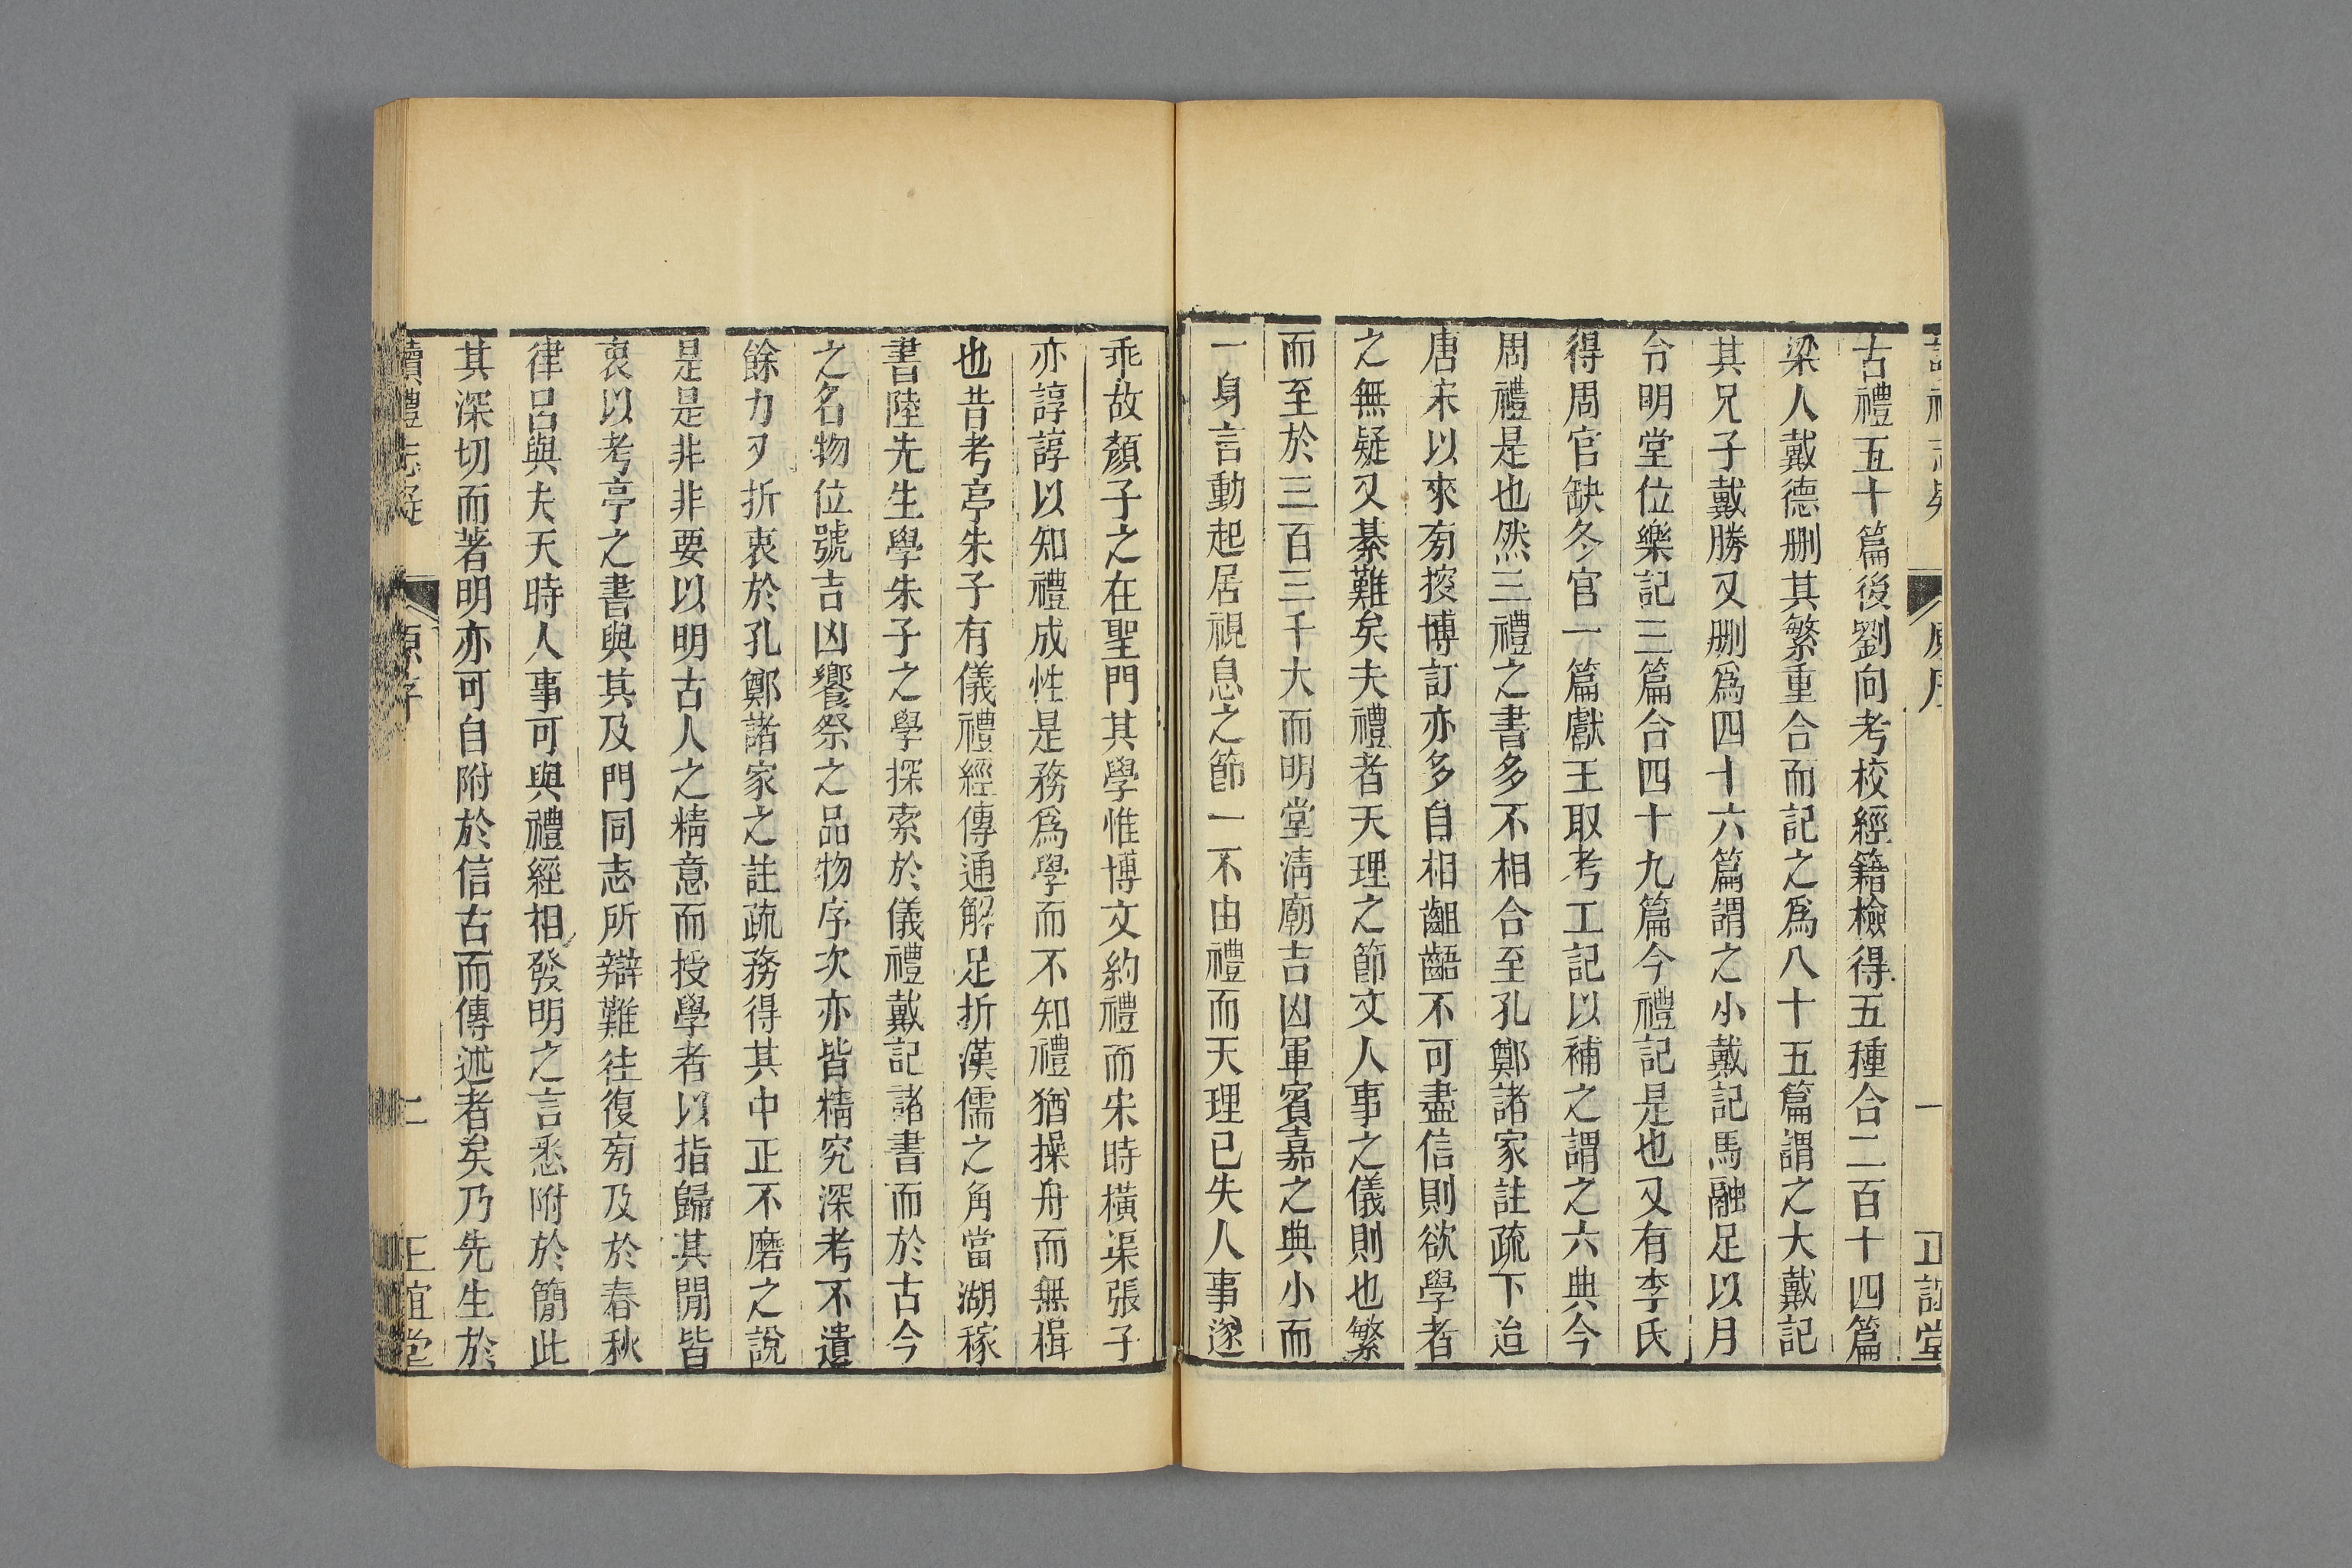 讀禮志疑 原序 一 正誼堂
古禮五十篇後劉向考校經籍檢得五種合二百十四篇
梁人戴德刪其繁重合而記之爲八十五篇謂之大戴記
其兄子戴勝又刪爲四十六篇謂之小戴記馬融足以月
令明堂位樂記三篇合四十九篇今禮記是也又有李氏
得周官缺冬官一篇獻王取考工記以補之謂之六典今
周禮是也然三禮之書多不相合至孔鄭諸家註疏下迨
唐宋以來旁搜博訂亦多自相齟齬不可盡信則欲學者
之無疑又綦難矣夫禮者天理之節文人事之儀則也繁
而至於三百三千大而明堂淸廟吉凶軍賓嘉之典小而
一身言動起居視息之節一不由禮而天理已失人事遂
乖故顏子之在聖門其學惟博文約禮而宋時橫渠張子
亦諄諄以知禮成性是務爲學而不知禮猶操舟而無楫
也昔考亭朱子有儀禮經傳通解足折漢儒之角當湖稼
書陸先生學朱子之學探索於儀禮戴記諸書而於古今
之名物位號吉凶饗祭之品物序次亦皆精究深考不遺
餘力又折衷於孔鄭諸家之註疏務得其中正不磨之說
是是非非要以明古人之精意而授學者以指歸其閒皆
衷以考亭之書與其及門同志所辯難往復旁及於春秋
律呂與夫天時人事可與禮經相發明之言悉附於簡此
其深切而著明亦可自附於信古而傳述者矣乃先生於
讀禮志疑 原序 二 正誼堂